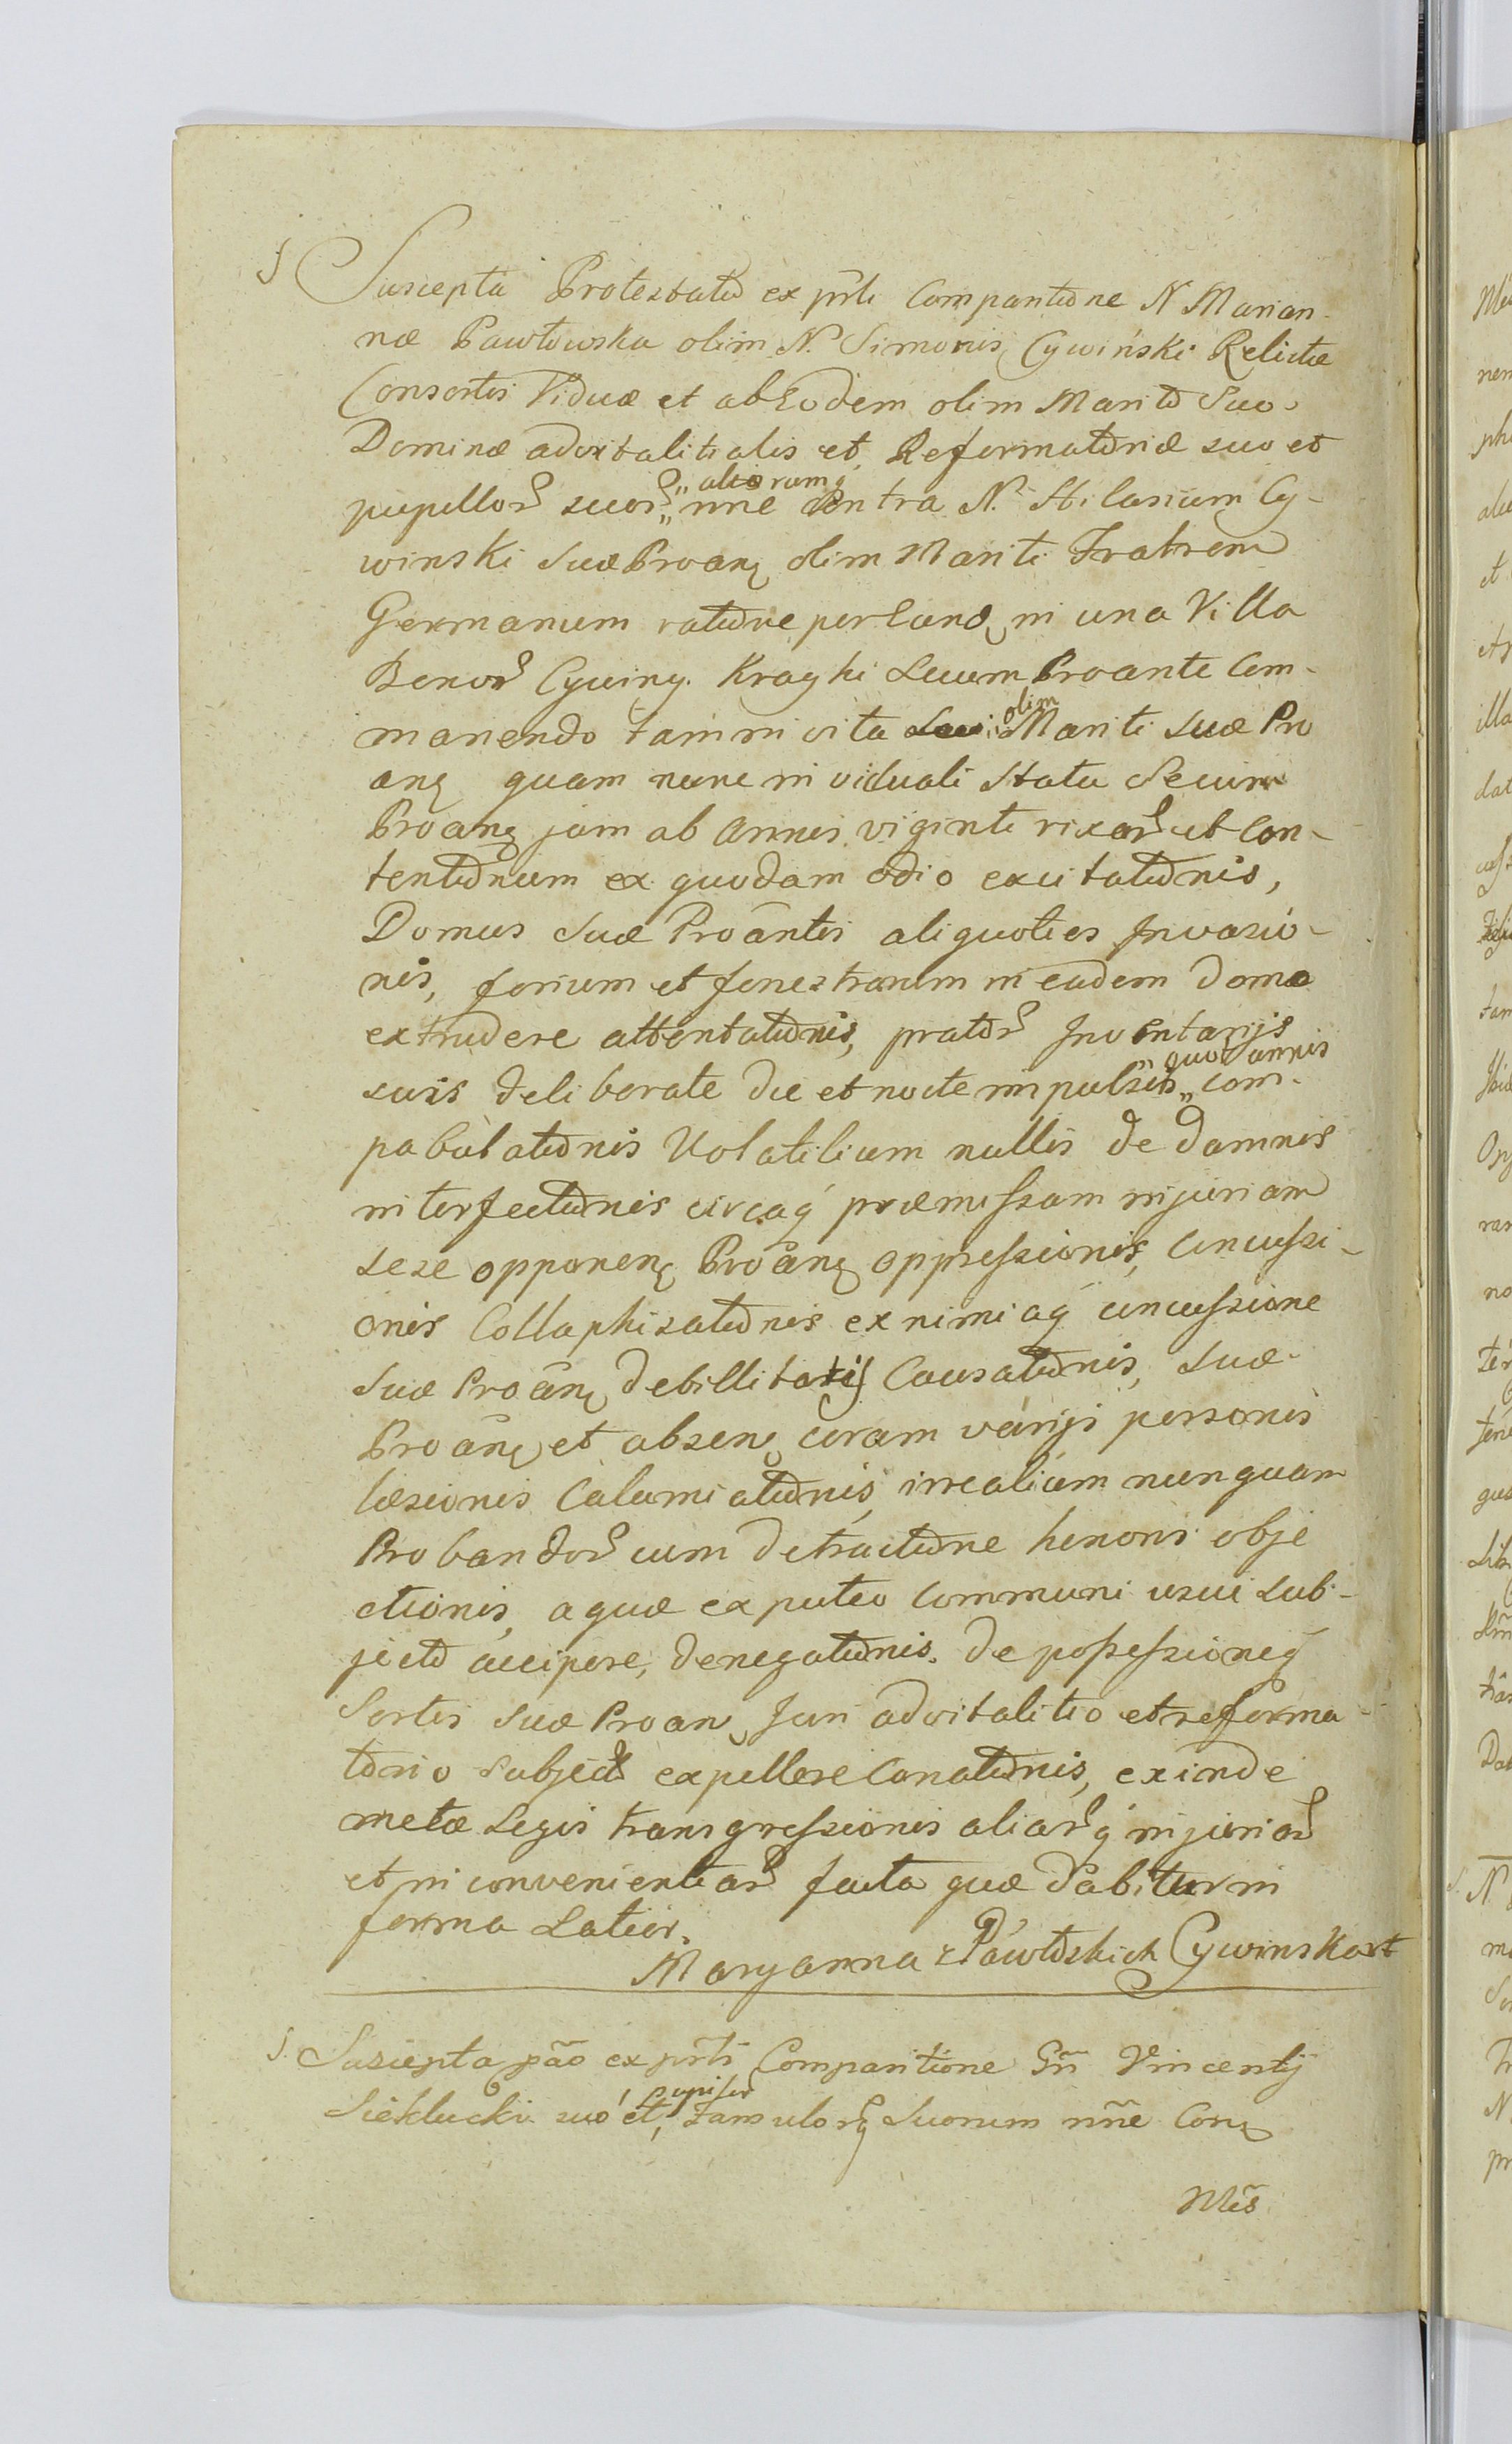 S Suscepta Protestatio ex prñti Comparitione N Marian-
næ Pawłowska olim N. Simonis Cywiński Relictæ
Consortis Viduæ et ab Eodem olim Marito Suo
Dominæ advitalitialis et Reformatoriæ suo et
pupillor suor „aliorumq
nne Contra N. Hilarium Cy-
winski suæ Proanę olim Mariti Fratrem
Germanum ratione per Eund in una Villa
Bonor Cywiny. Kraghi secum Proante Com-
manendo tam in vita olim Mariti suæ Pro
anę quam nunc in viduali statu Secum
Proanę jam ab annis viginti rixar et Con-
tentionum ex quodam odio excitationis,
Domus suæ Proantis aliquoties Invasio-
nis, forium et fenestrarum in eadem domo
extrudere attentationis, prator Inventarijs
suis deliberate die et nocte impulsis „quot annis com-
pabulationis Volatilium nullis de damnis
interfectionis circaq præmissam injuriam
sese opponenę Proanę oppressionis, Concussi-
onis Collaphisationis ex nimiaq concussione
suæ Proanę debillitatis Causationis, suæ
Proanę et absen coram varijs personis
læsionis Calumiationis, irrealium nunquam
Probandor cum detractione honoris obje
ctionis, aquæ ex puteo communi usui sub-
jecto accipere, denegationis. de possessioneq
Sortis suæ Proan Juri advitalitio et reforma
torio subject expellere Conationis, exinde
metæ Legis transgressionis aliarq injuriar
et inconvenientiar facta quæ dabitur in
forma Latior.
Maryanna z Pawłoskich Cywinska
S. Suscepta pão ex prñti Comparitione Gñ Vincentij
Sieklucki suo et, famulorq Suorum nñe Conę
Mẽs